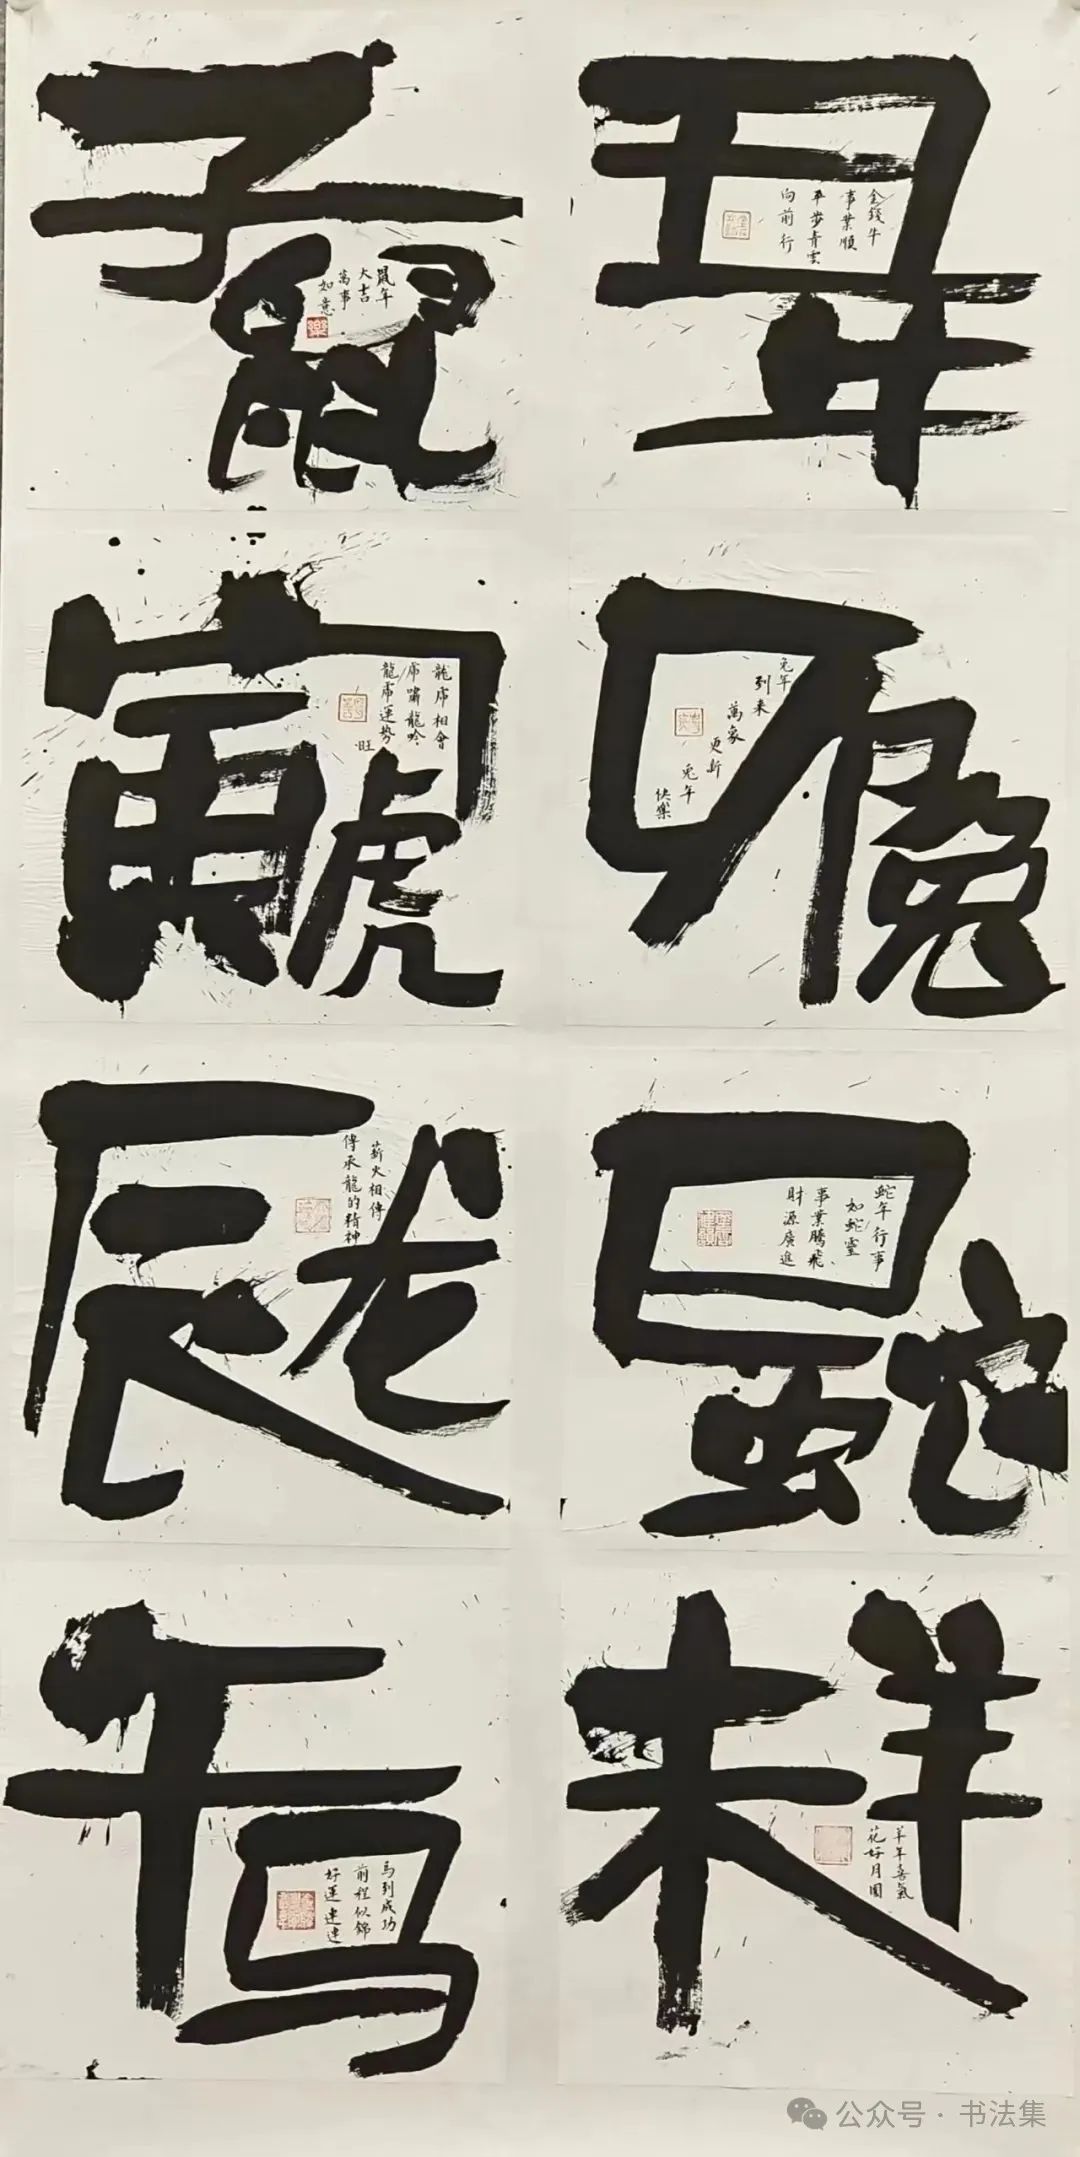 子鼠
鼠年
大吉
萬事
如意
丑牛
金錢牛
事業順
平步青雲
向前行
寅虎
龍虎相會
虎嘯龍吟
龍虎運勢
旺
卯兔
兔年
到来
萬象
更新
兔年
快樂
辰龙
薪火相傳
傳承龍的精神
巳蛇
蛇年行事
如蛇靈
事業騰飛
財源廣進
午马
馬到成功
前程似錦
好運連連
未羊
羊年喜氣
花好月圓
公众号·书法集